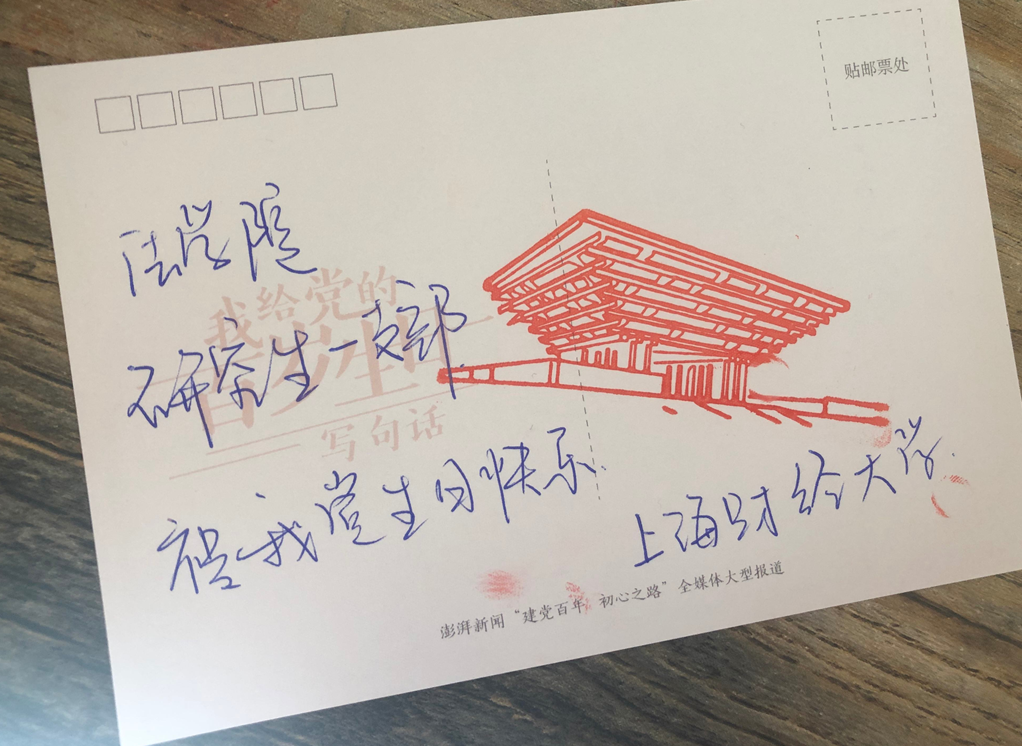 贴邮票处
法学院
我给党的
百岁生日
研究生一支部
写句话
祝我党生日快乐
上海财经大学
澎湃新闻“建党百年 初心之路”全媒体大型报道